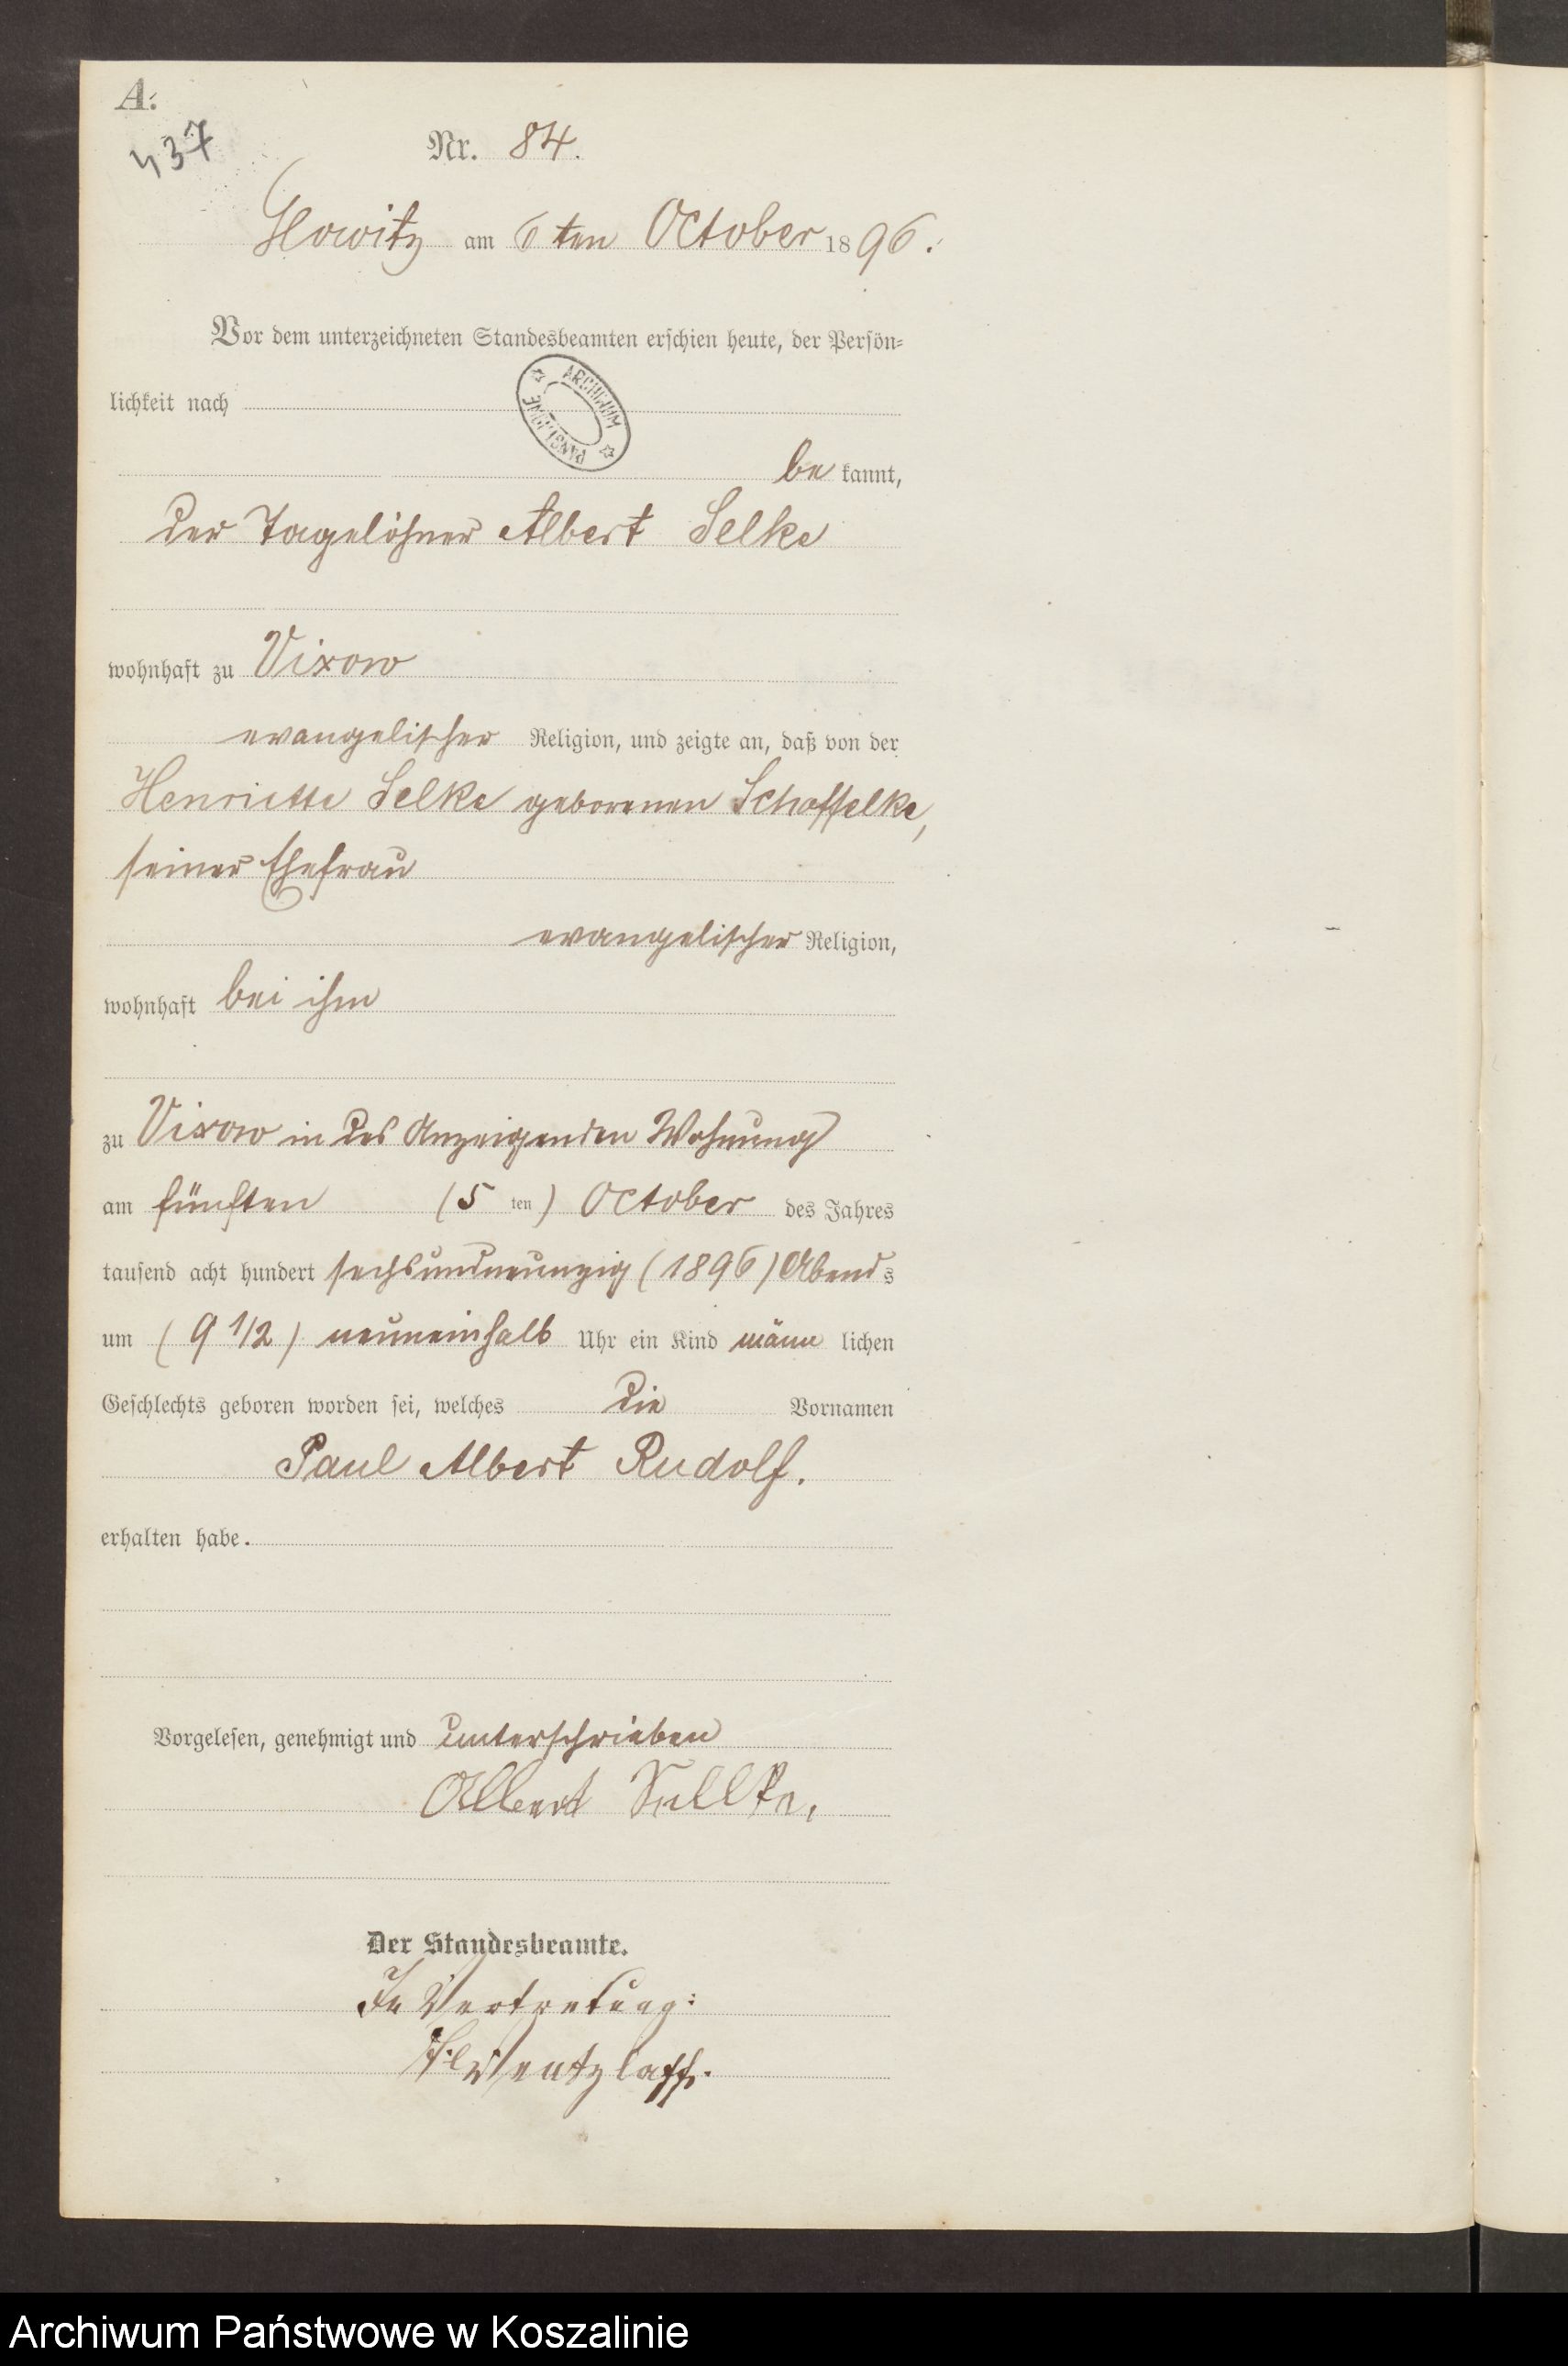 A.
437
Nr. 84.
Glowitz am 6ten October 1896.
Vor dem unterzeichneten Standesbeamten erschien heute, der Persön-
lichkeit nach
ARCHIWUM PAŃSTWOWE
be kannt,
der Tagelöhner Albert Selke
wohnhaft zu Vixow
evangelischer Religion, und zeigte an, daß von der
Henriette Selke geborenen Schoffelke,
seiner Ehefrau
evangelischer Religion,
wohnhaft bei ihm
zu Vixow in des Anzeigenden Wohnung
am fünften (5 ten) October des Jahres
tausend acht hundert sechsundneunzig (1896) Abends
um (9 1/2) neuneinhalb Uhr ein Kind männ lichen
Geschlechts geboren worden sei, welches die Vornamen
Paul Albert Rudolf.
erhalten habe.
Vorgelesen, genehmigt und unterschrieben
Albert Sellke.
Der Standesbeamte.
In Vertretung:
Wentzlaff.
Archiwum Państwowe w Koszalinie